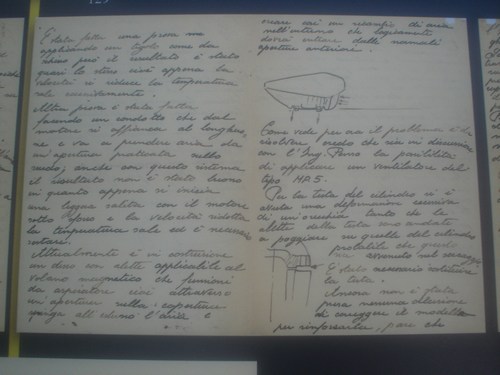 È stata fatta una prova ma
applicando un tegolo come da
schema però il risultato è stato
quasi lo stesso cioè appena la
velocità si riduce la temperatura
sale eccessivamente.
Altra prova è stata fatta
facendo un condotto che dal
motore si affianca al longhero,
ne e va a prendere aria da
un'apertura praticata sullo
scudo; anche con questo sistema
il risultato non è stato buono
in quanto appena si inizia
una leggera salita con il motore
sotto sforzo e la velocità ridotta
la temperatura sale ed è necessario
sostare.
Attualmente è in costruzione
un disco con alette applicabile al
volano magnetico che funzioni
da aspiratore cioè attraverso
un'apertura sulla copertura
spinga all'esterno l'aria e
creare così un ricambio di aria
nell'interno che logicamente
dovrà entrare dalle normali
aperture anteriori.
Come vede per ora il problema è da
risolvere, credo che sia in discussione
con l'Ing. la possibilità
di applicare un ventilatore del
tipo MP5.
Per la testa del cilindro si è
avuta una deformazione eccessiva
di un'orecchia tanto che le
alette della testa sono andate
a poggiare su quelle del cilindro
probabile che questo
sia avvenuto nel
È stato necessario sostituire
la testa.
Ancora non è stata
presa nessuna decisione
di correggere il modello
per rinforzarla, pare che